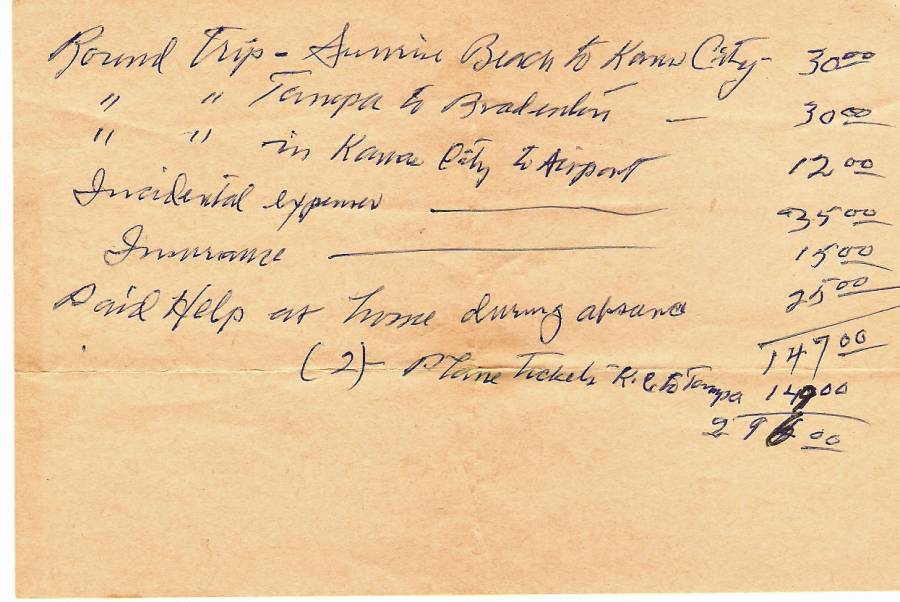 Round Trip - Sunrise Beach to Kansas City - 30 00
" " Tampa to Bradenton — 30 00
" " in Kansas City to Airport 12 00
Incidental expenses — 35 00
Insurance — 15 00
Paid Help at home during absence 25 00
147 00
(2) - Plane Tickets K.C. to Tampa 149 00
296 00